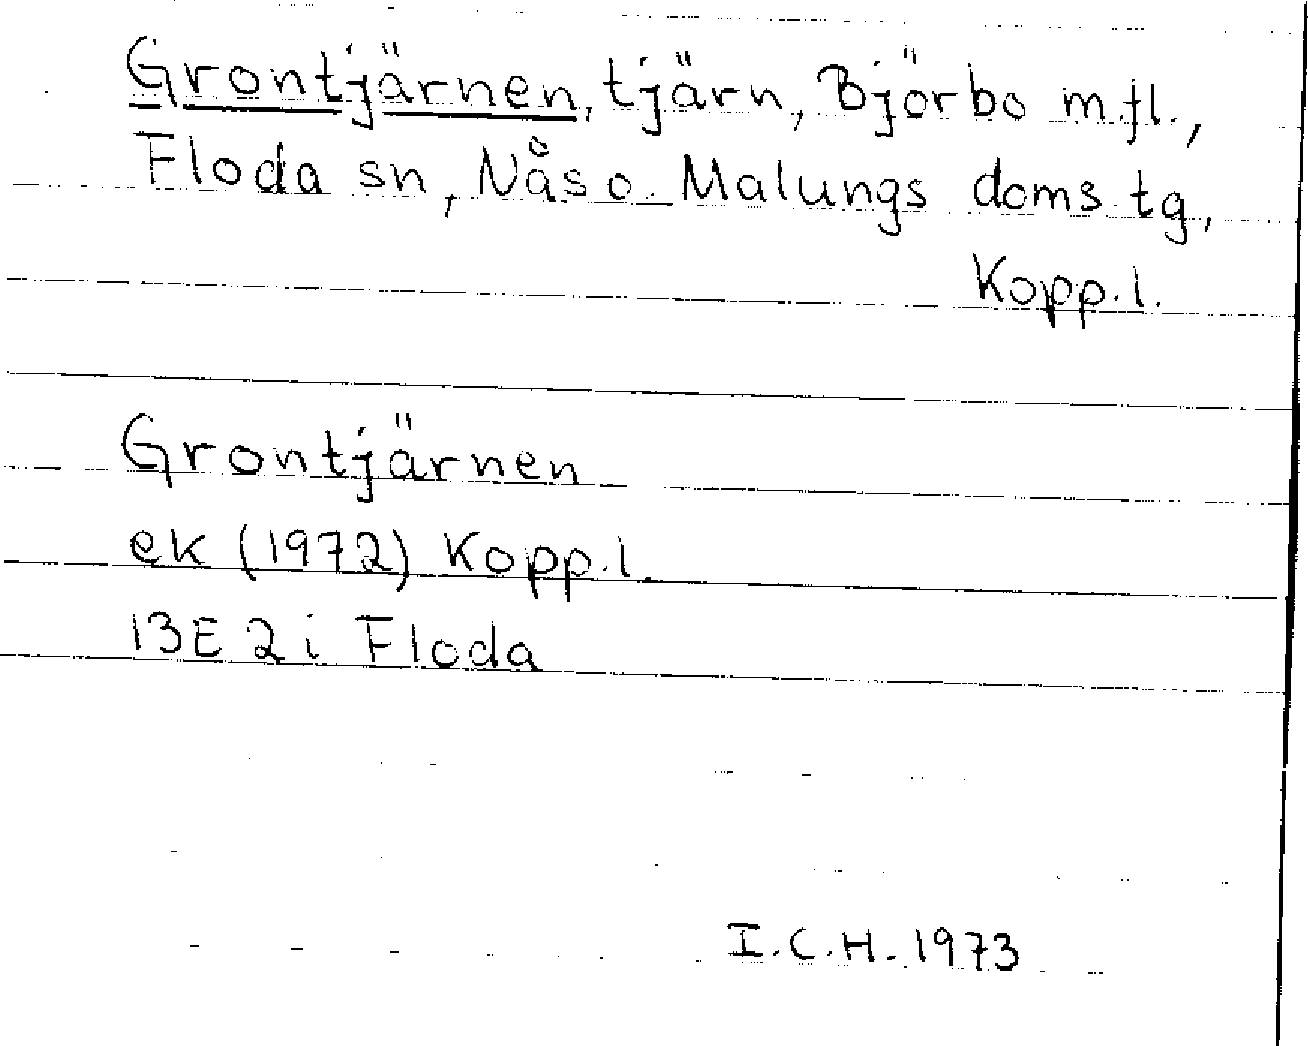 Grontjärnen, tjärn, Björbo m.fl.,
Floda sn, Nås o. Malungs doms.tg,
Kopp.l.
Grontjärnen
ek (1972) Kopp.l.
13E 2i Floda
I.C.H. 1973